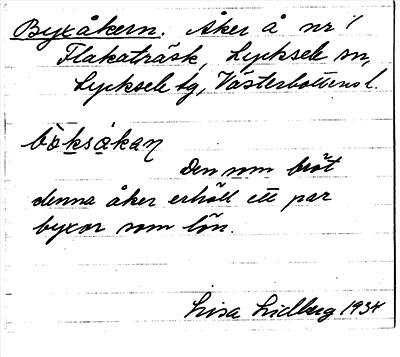 Byxåkern. Åker å nr 1
Flakaträsk, Lycksele sn,
Lycksele tg, Västerbottens l.
bòksòkaɳ
Den som bröt
denna åker erhöll ett par
byxor som lön.
Lisa Lidberg 1934